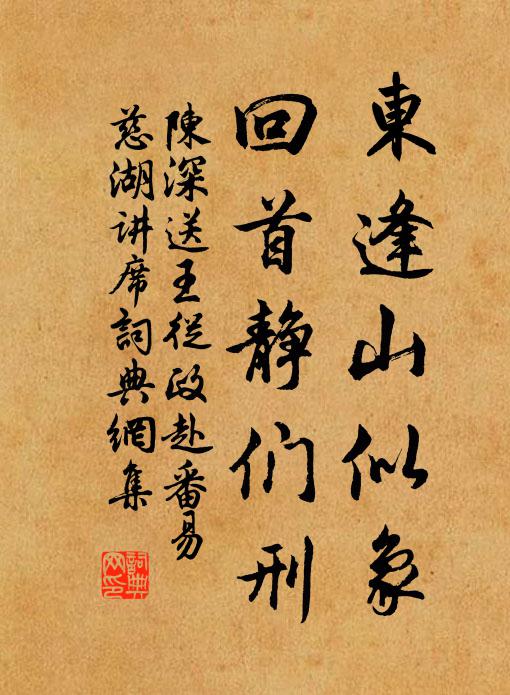 東逢山似象
回首静们刑
陳深送王從政赴番易
慈湖讲席詞典網集
詞典
网印